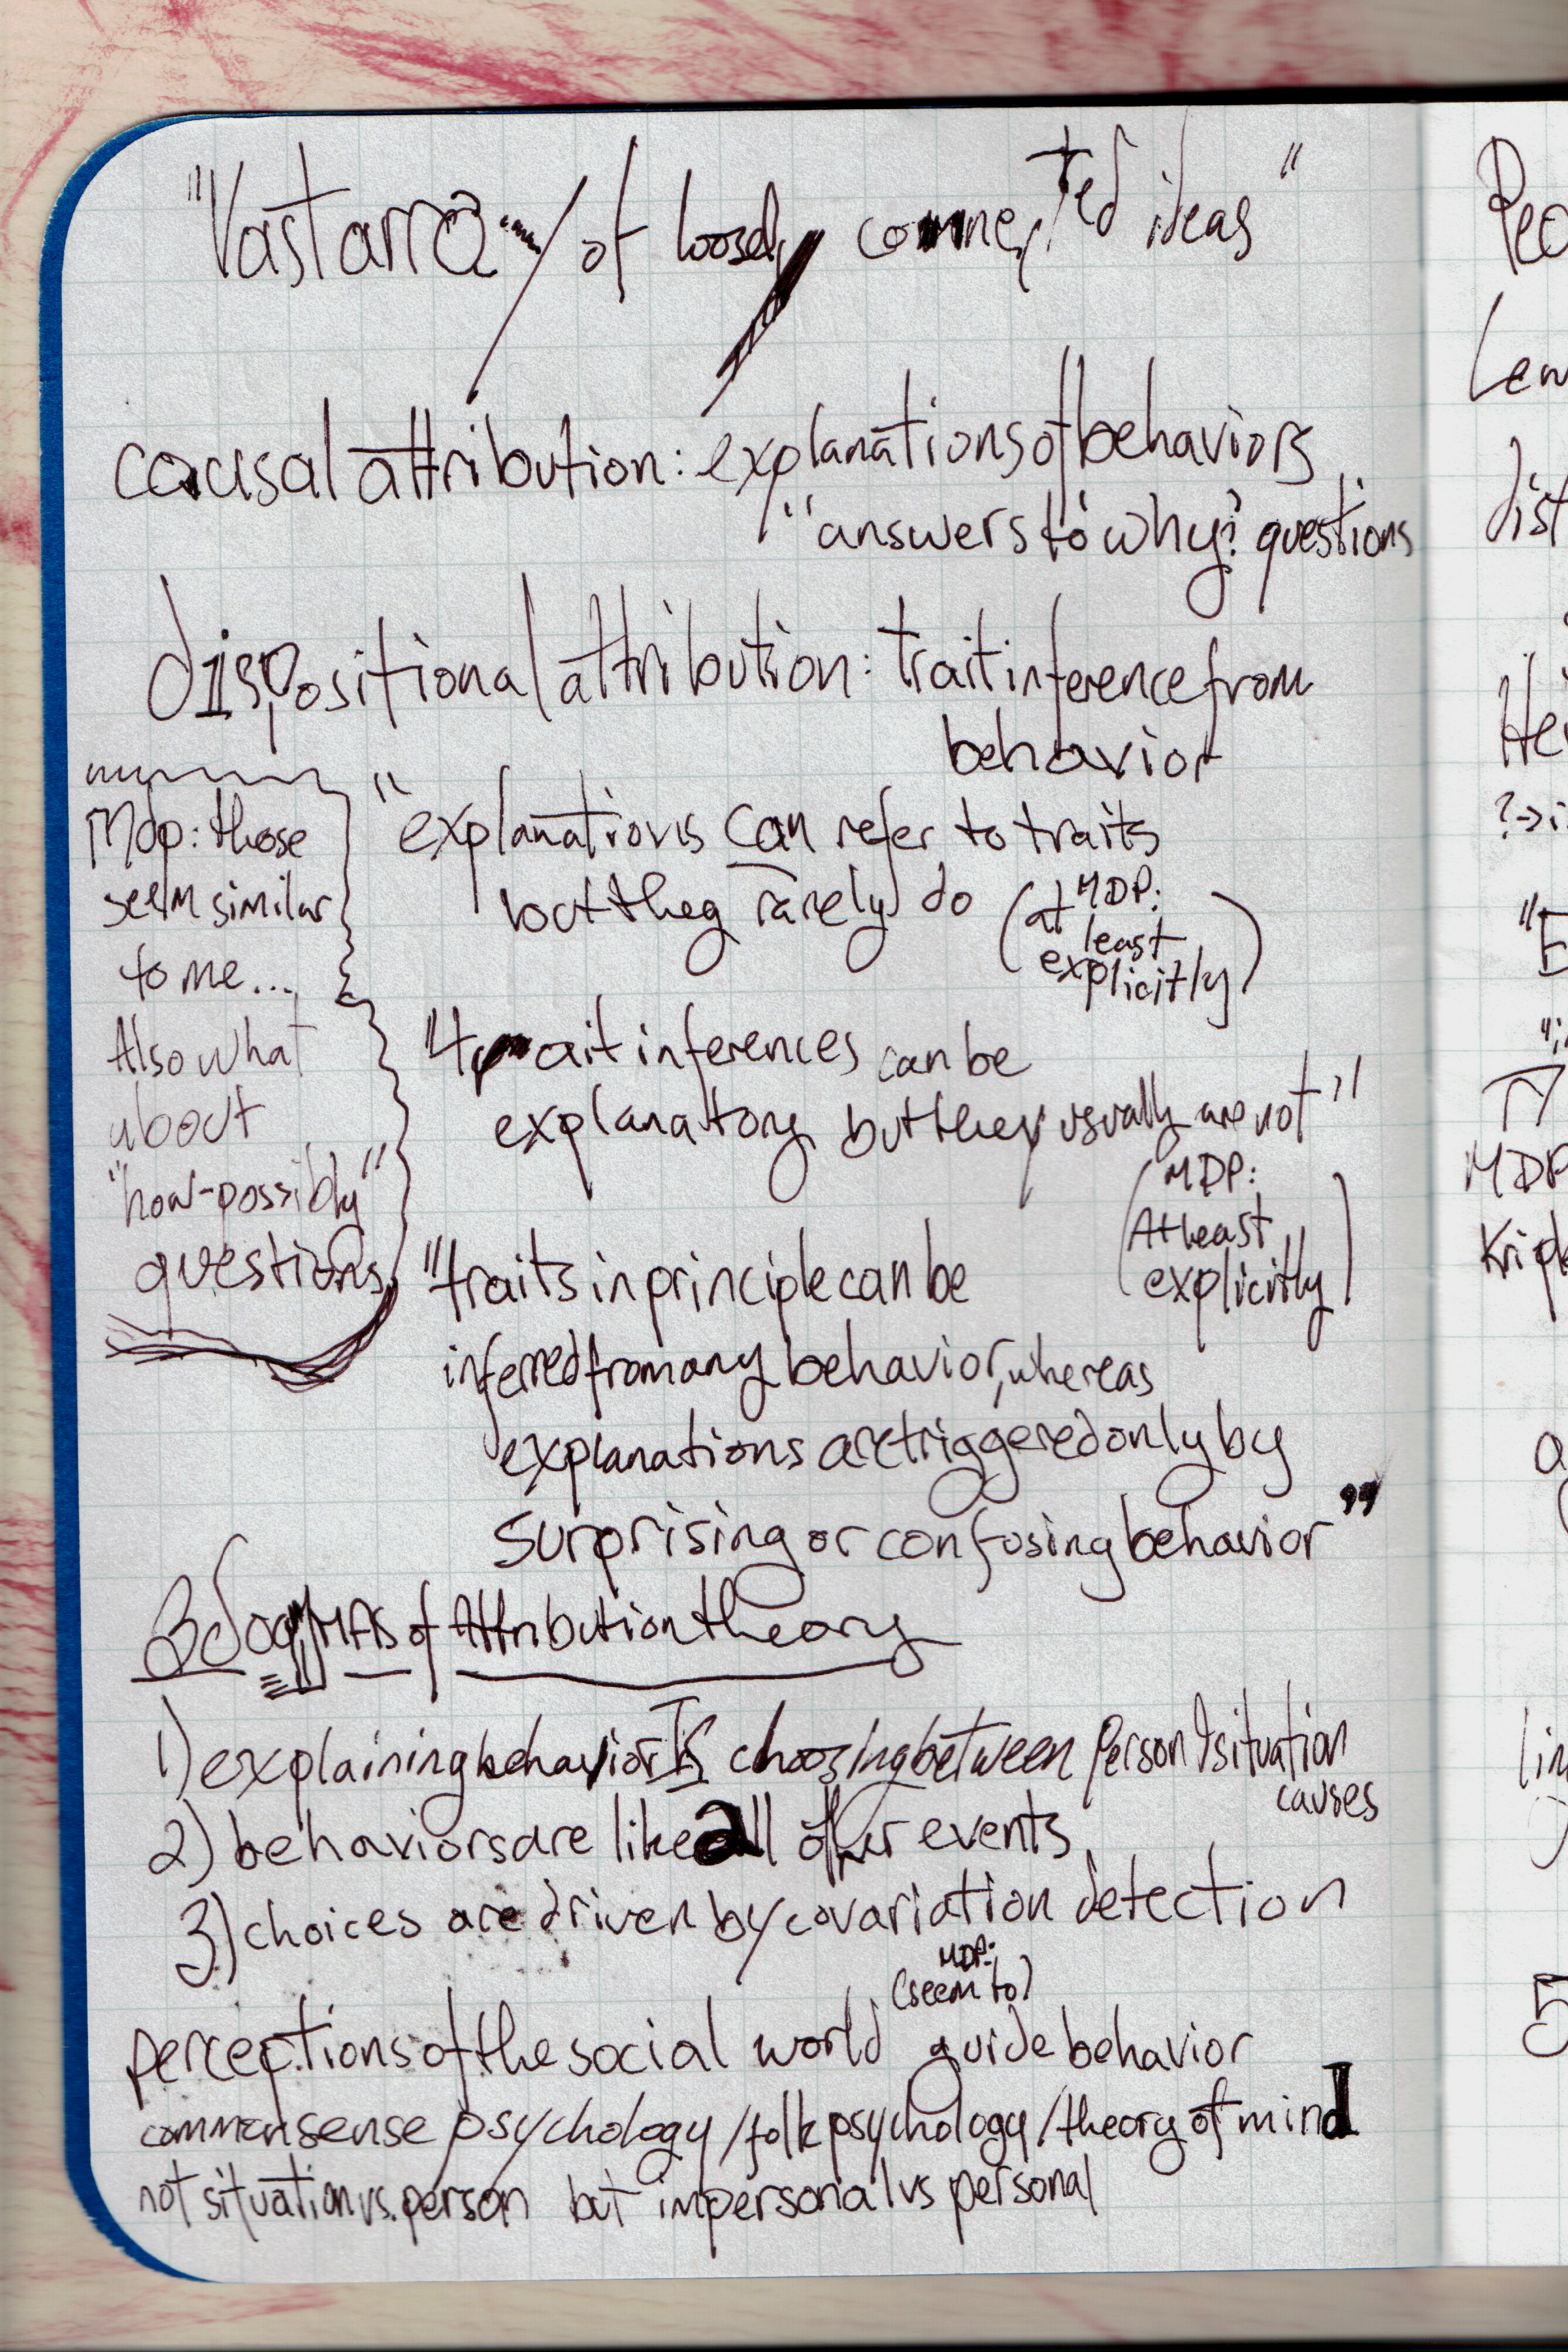 "Vast array of loosely connected ideas"
causal attribution: explanations of behaviors
"answers to why? questions
dispositional attribution: trait inference from
behavior
"explanations can refer to traits
but they rarely do (MDP:
at least
explicitly)
MDP: those
seem similar
to me...
Also what
about
"how-possibly"
questions
"trait inferences can be
explanatory but they usually are not"
(MDP:
At least
explicitly)
"traits in principle can be
inferred from any behavior, whereas
explanations are triggered only by
surprising or confusing behavior"
3 dogMAs of Attribution theory
1) explaining behavior Is choosing between Person & situation
causes
2) behaviors are like all other events
3) choices are driven by covariation detection
MDP:
(seem to)
perceptions of the social world guide behavior
commonsense psychology/folk psychology/theory of mind
not situation vs. person but impersonal vs personal
Hei
?→i
"E
MDP
5